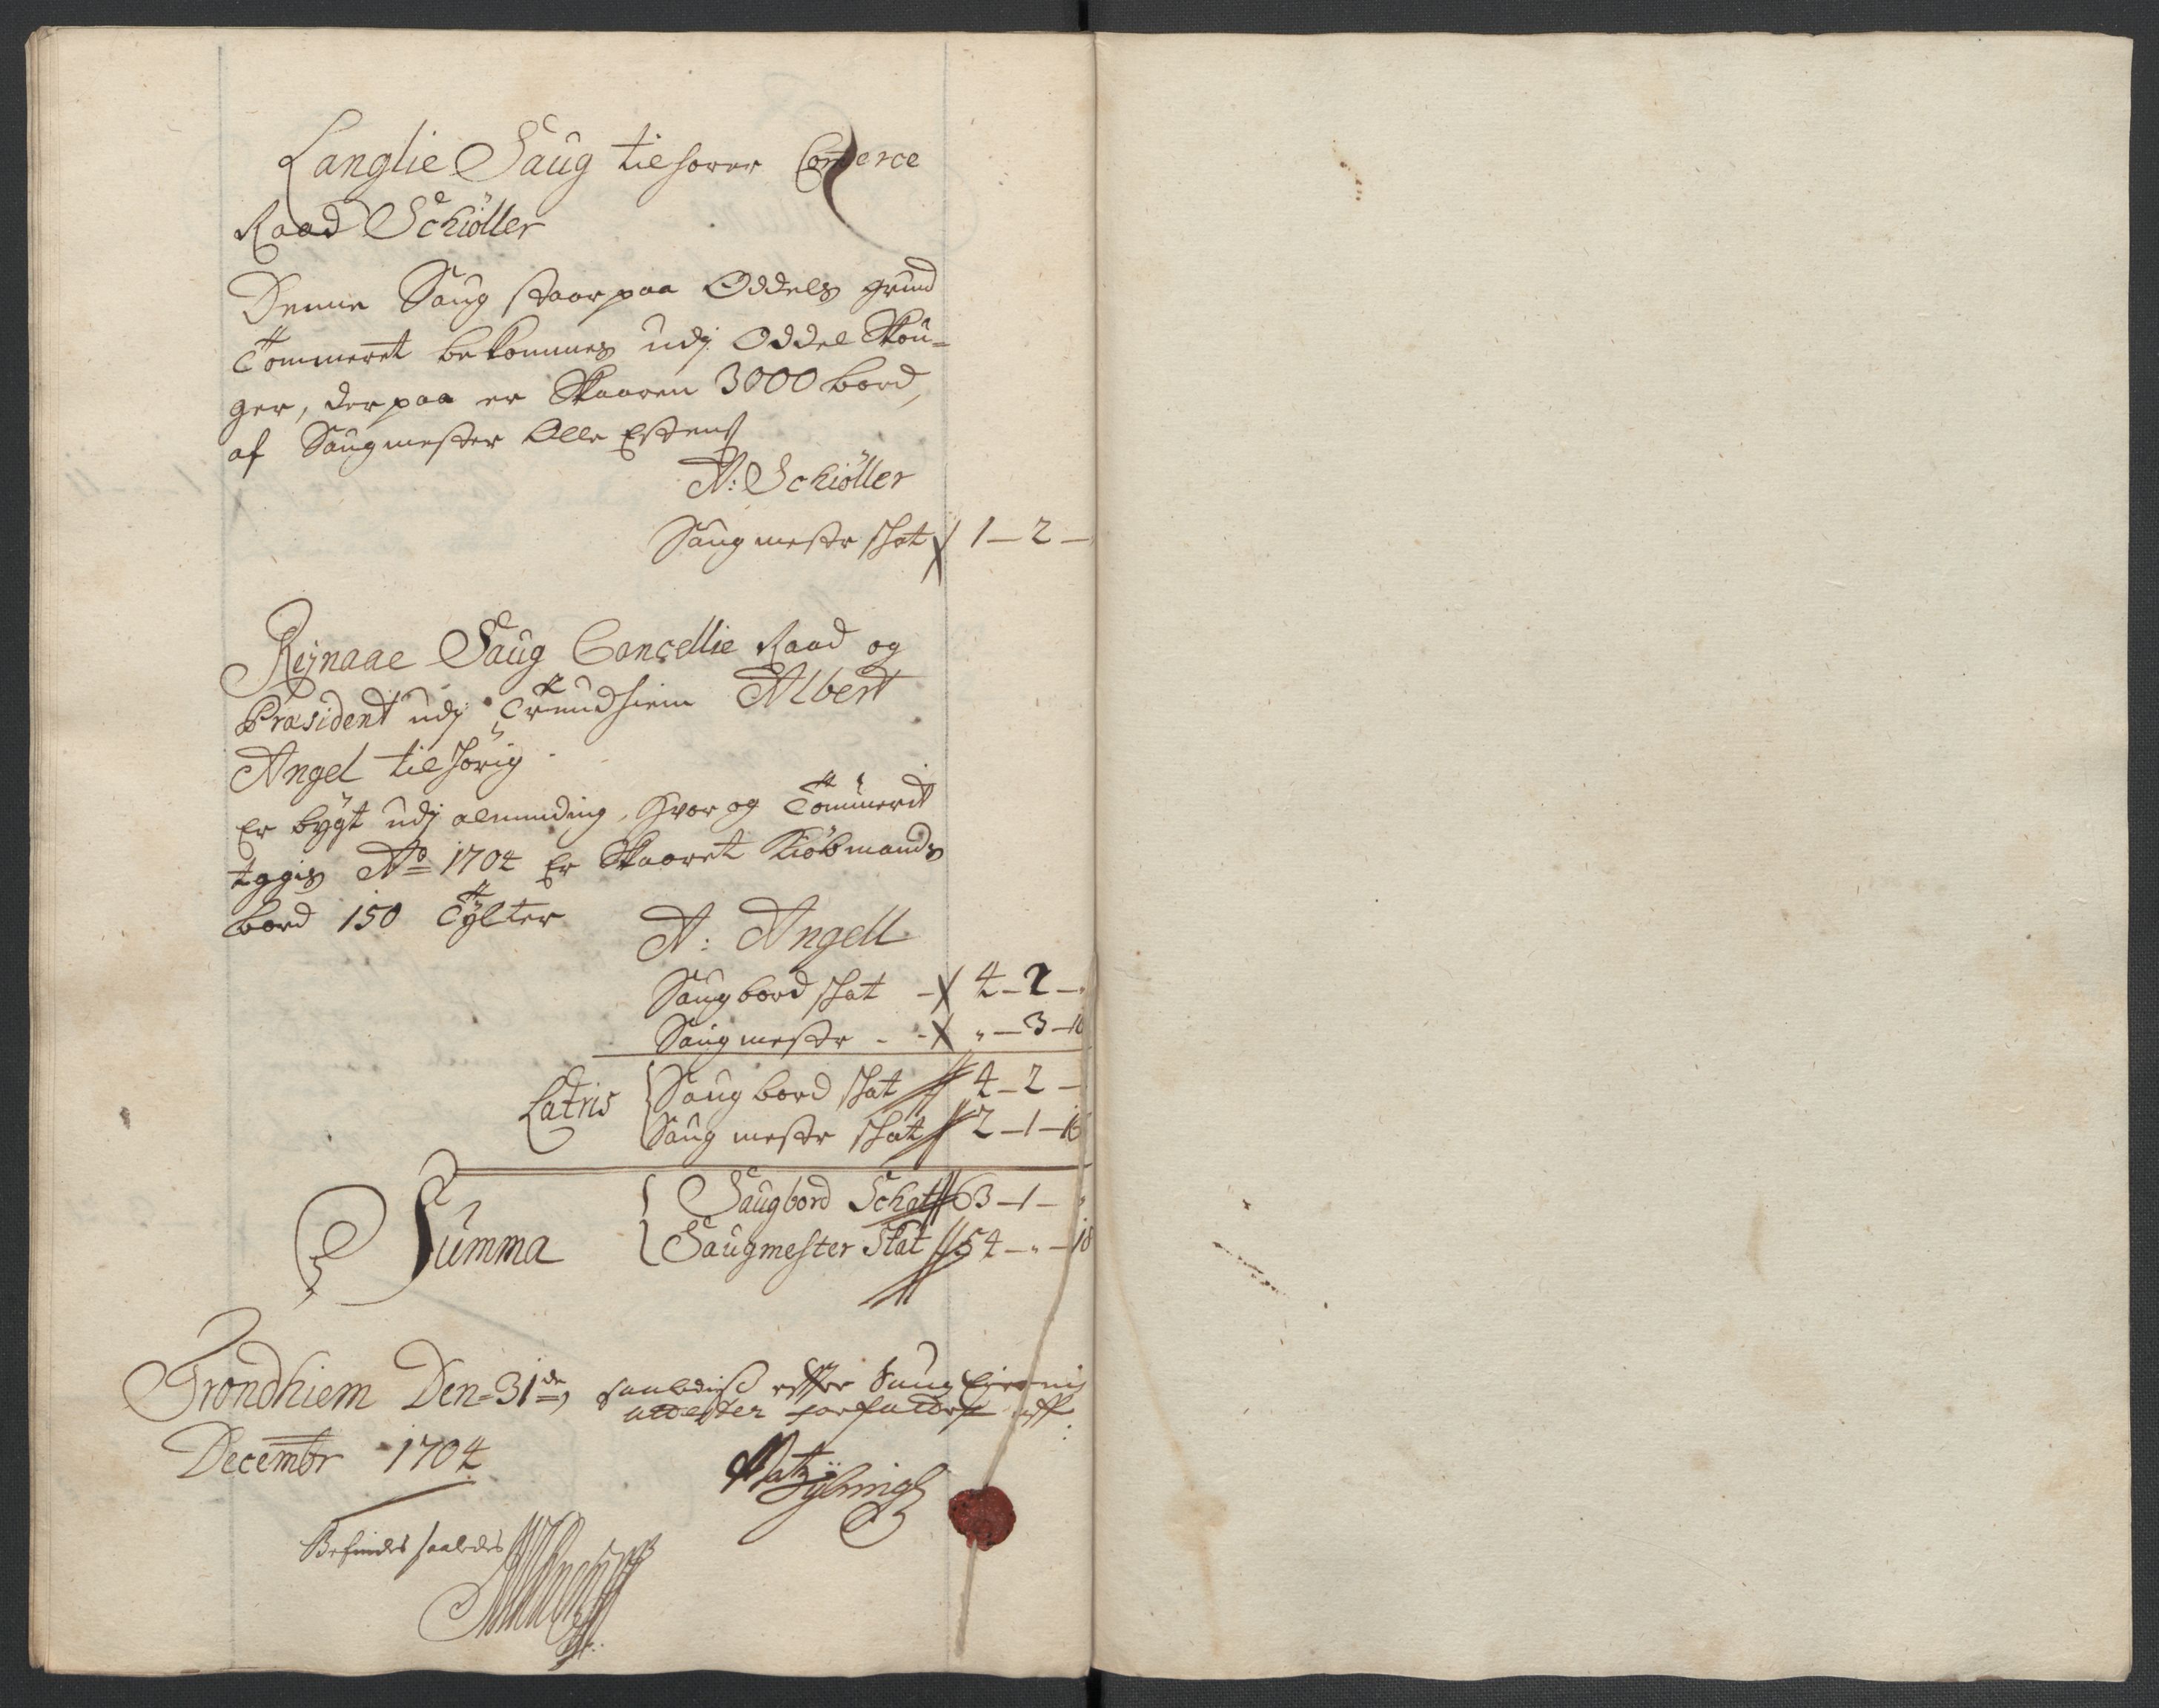 Langlie Saug tilhører Comerce
Raad Schiøller
Denne Saug staar paa Oddels grund
Tømmeret bekommes udj Oddel Skou-
ger, der paa er Skaaren 3000 bord,
af Saugmester Olle Estens
A: Schiøller
Saugmestr skat 1 - 2 -
Reÿnaae Saug Cancellie Raad og
Præsident udj Trundhiem Albert
Angel tilhørig
Er bÿgt udj alminding, hvor og Tømmerit
tggis Ao 1704 Er Skaaret Kiøbmands
bord 150 Tÿlter
A: Angell
Saugbord skat - 4 - 2 - „
Saugmestr - - „ - 3 - 16
Latris Saugbord skat 4 - 2 -
Saug mestr skat 2 - 1 - 16
Summa Saugbord Schat 63 - 1 - „
Saugmester Skat 54 - „ - 18
Trondhiem Den 31de, saaledis efter Saug
forfattet aff
Decembr 1704
Befindes saaledes